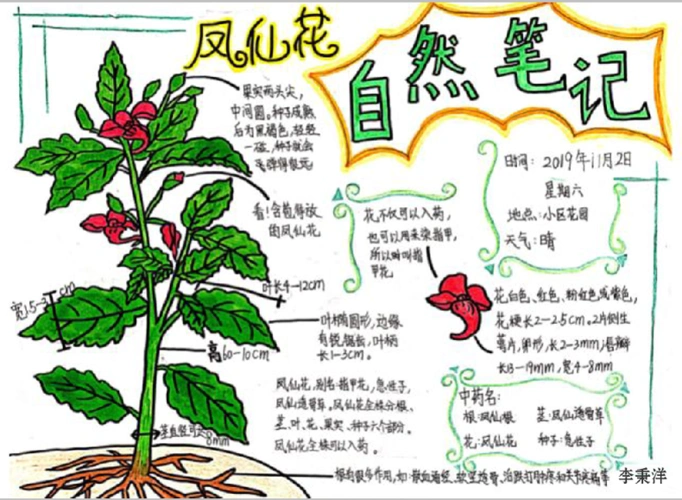 凤仙花
自然笔记
果实两头尖，
中间圆。种子成熟
后为黑褐色，轻轻
一碰，种子就会
弹得很远
时间：2019年11月2日
星期六
地点：小区花园
天气：晴
看！含苞待放
的凤仙花
花不仅可以入药，
也可以用来染指甲，
所以叫指
甲花
叶长4-12cm
宽1.5-3cm
高60-10cm
叶椭圆形，边缘
有锐锯齿，叶柄
长1-3cm。
花白色、红色、粉红色或紫色，
花梗长2-2.5cm。2片侧生
萼片，卵形，长2-3mm，唇瓣
长13-19mm，宽4-8mm
凤仙花，别名：指甲花，急性子，
凤仙透骨草。凤仙花全株分根、
茎、叶、花、果实、种子六个部分。
凤仙花全株可以入药。
中药名：
根：凤仙根 茎：凤仙透骨草
花：凤仙花 种子：急性子
茎直径可达8mm
李秉洋